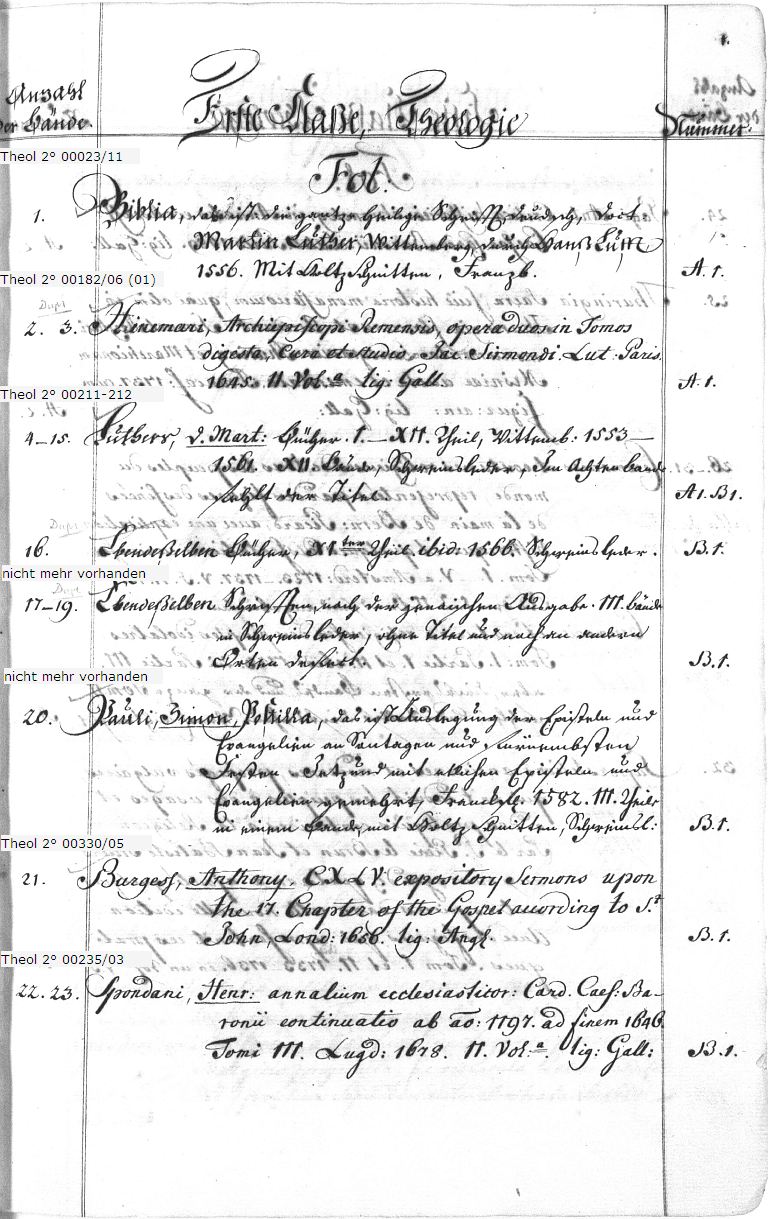 1.
Anzahl
der Bände.
Erste Claße, Theologie
Nummer.
Theol 2° 00023/11
Fol.
1. Biblia, das ist: die gantze Heilige Schrifft, deudsch, Doct.
Martin Luther, Wittemberg, durch Hanß Lufft
1556. Mit Holtzschnitten, Franzb. A.1.
Theol 2° 00182/06 (01)
Dupl
2. 3. Hincmari, Archiepiscopi Remensis, opera duos in Tomos
digesta, cura et studio, Jac: Sirmondi. Lut: Paris.
1645. II. Vol:a lig: Gall. A.1.
Theol 2° 00211-212
4–15. Luthers, D. Mart: Bücher. 1.–XII. Theil, Wittemb: 1553–
1561. XII Bände, Schweinsleder, Im Achten bande
fehlt der Titel. A1.B1.
16. Ebendeßelben Bücher, XIter Theil. ibid: 1566. Schweinsleder. B.1.
nicht mehr vorhanden
17–19. Ebendeßelben Schrifften, nach der Jenaischen Ausgabe. III. bände
in Schweinsleder, ohne Titel und auch an andern
Orten defect. B.1.
nicht mehr vorhanden
20. Pauli, Simon, Postilla, das ist Auslegung der Episteln und
Evangelien an Sontagen und fürnembsten
Festen Jetzund mit etlichen Episteln und
Evangelien gemehrt, 1582. III. Theile
in einem Bande, mit Holtzschnitten, Schweinsl: B.1.
Theol 2° 00330/05
21. Burgess, Anthony, CXLV. expository Sermons upon
the 17. Chapter of the Gospel according to S.t
John, Lond: 1656. lig: Angl. B.1.
Theol 2° 00235/03
22. 23. Spondani, Henr: annalium ecclesiasticor: Card. Caes: Ba-
ronii continuatio ab ao: 1197. ad finem 1646.
Tomi III. Lugd: 1678. II. Vol:a. lig: Gall: B.1.